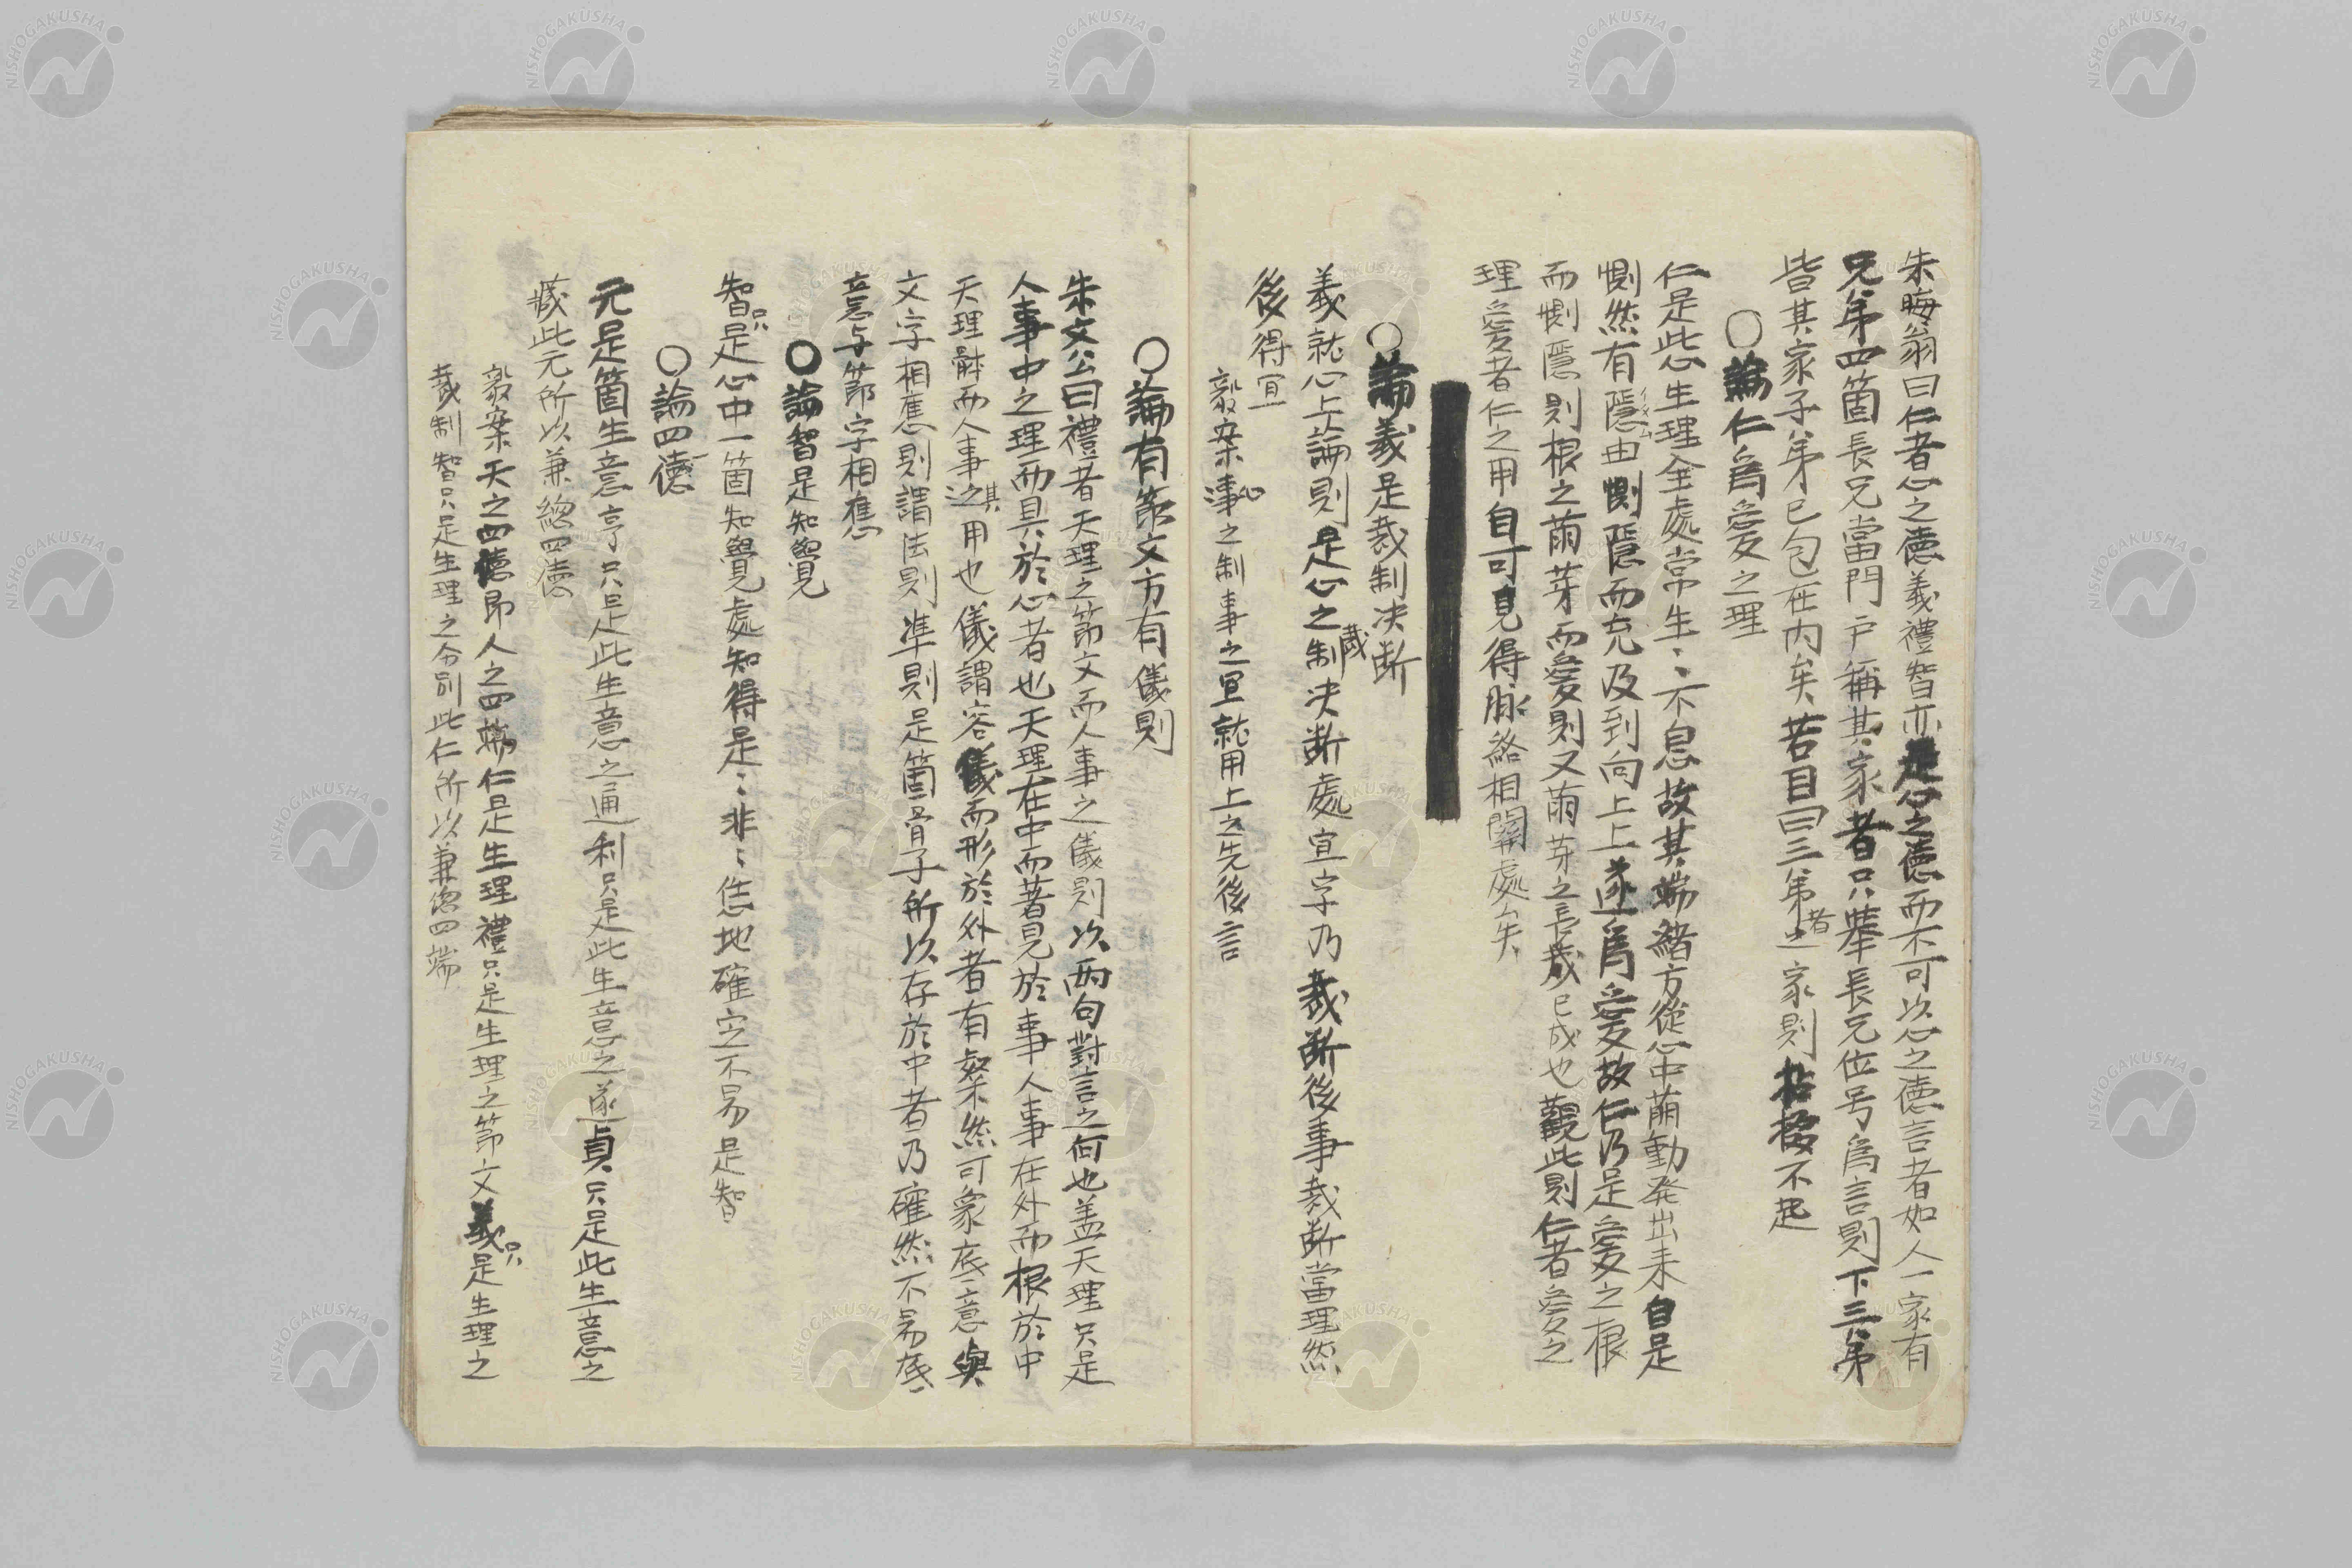 朱晦翁曰仁者心之德義禮智亦是心之德而不可以心之德言者如人一家有
兄弟四箇長兄當門戸稱其家者只舉長兄位号爲言則下三弟
皆其家子弟已包在内矣若自曰三弟者之家則拈掇不起
○論仁爲愛之理
仁是此心生理全處常生〻不息故其端緒方從心中萠動発出来自是
惻然有隱由惻隱而充及到向上上遂爲愛故仁乃是愛之根
而惻隱則根之萠芽而愛則又萠芽之長茂已成也觀此則仁者愛之
理愛者仁之用自可見得脉絡相關處矣
○論義是裁制决斷
義就心上論則是心之裁制决斷處宜字乃裁斷後事裁斷當理然
後得宜
毅案心之制事之宜就用上之先後言
○論有節文方有儀則
朱文公曰禮者天理之節文而人事之儀則以兩句對言之何也盖天理只是
人事中之理而具於心者也天理在中而著見於事人事在外而根於中
天理體而人事其用也儀謂容儀而形於外者有粲然可象底意與
文字相應則謂法則準則是箇骨子所以存於中者乃確然不易底
意与節字相應
○論智是知覺
智只是心中一箇知覺處知得是〻非〻恁地確定不易是智
○論四德
元是箇生意亨只是此生意之通利只是此生意之遂貞只是此生意之
藏此元所以兼緫四德
毅案天之四德即人之四端仁是生理禮只是生理之節文義只是生理之
裁制智只是生理之分別此仁所以兼緫四端